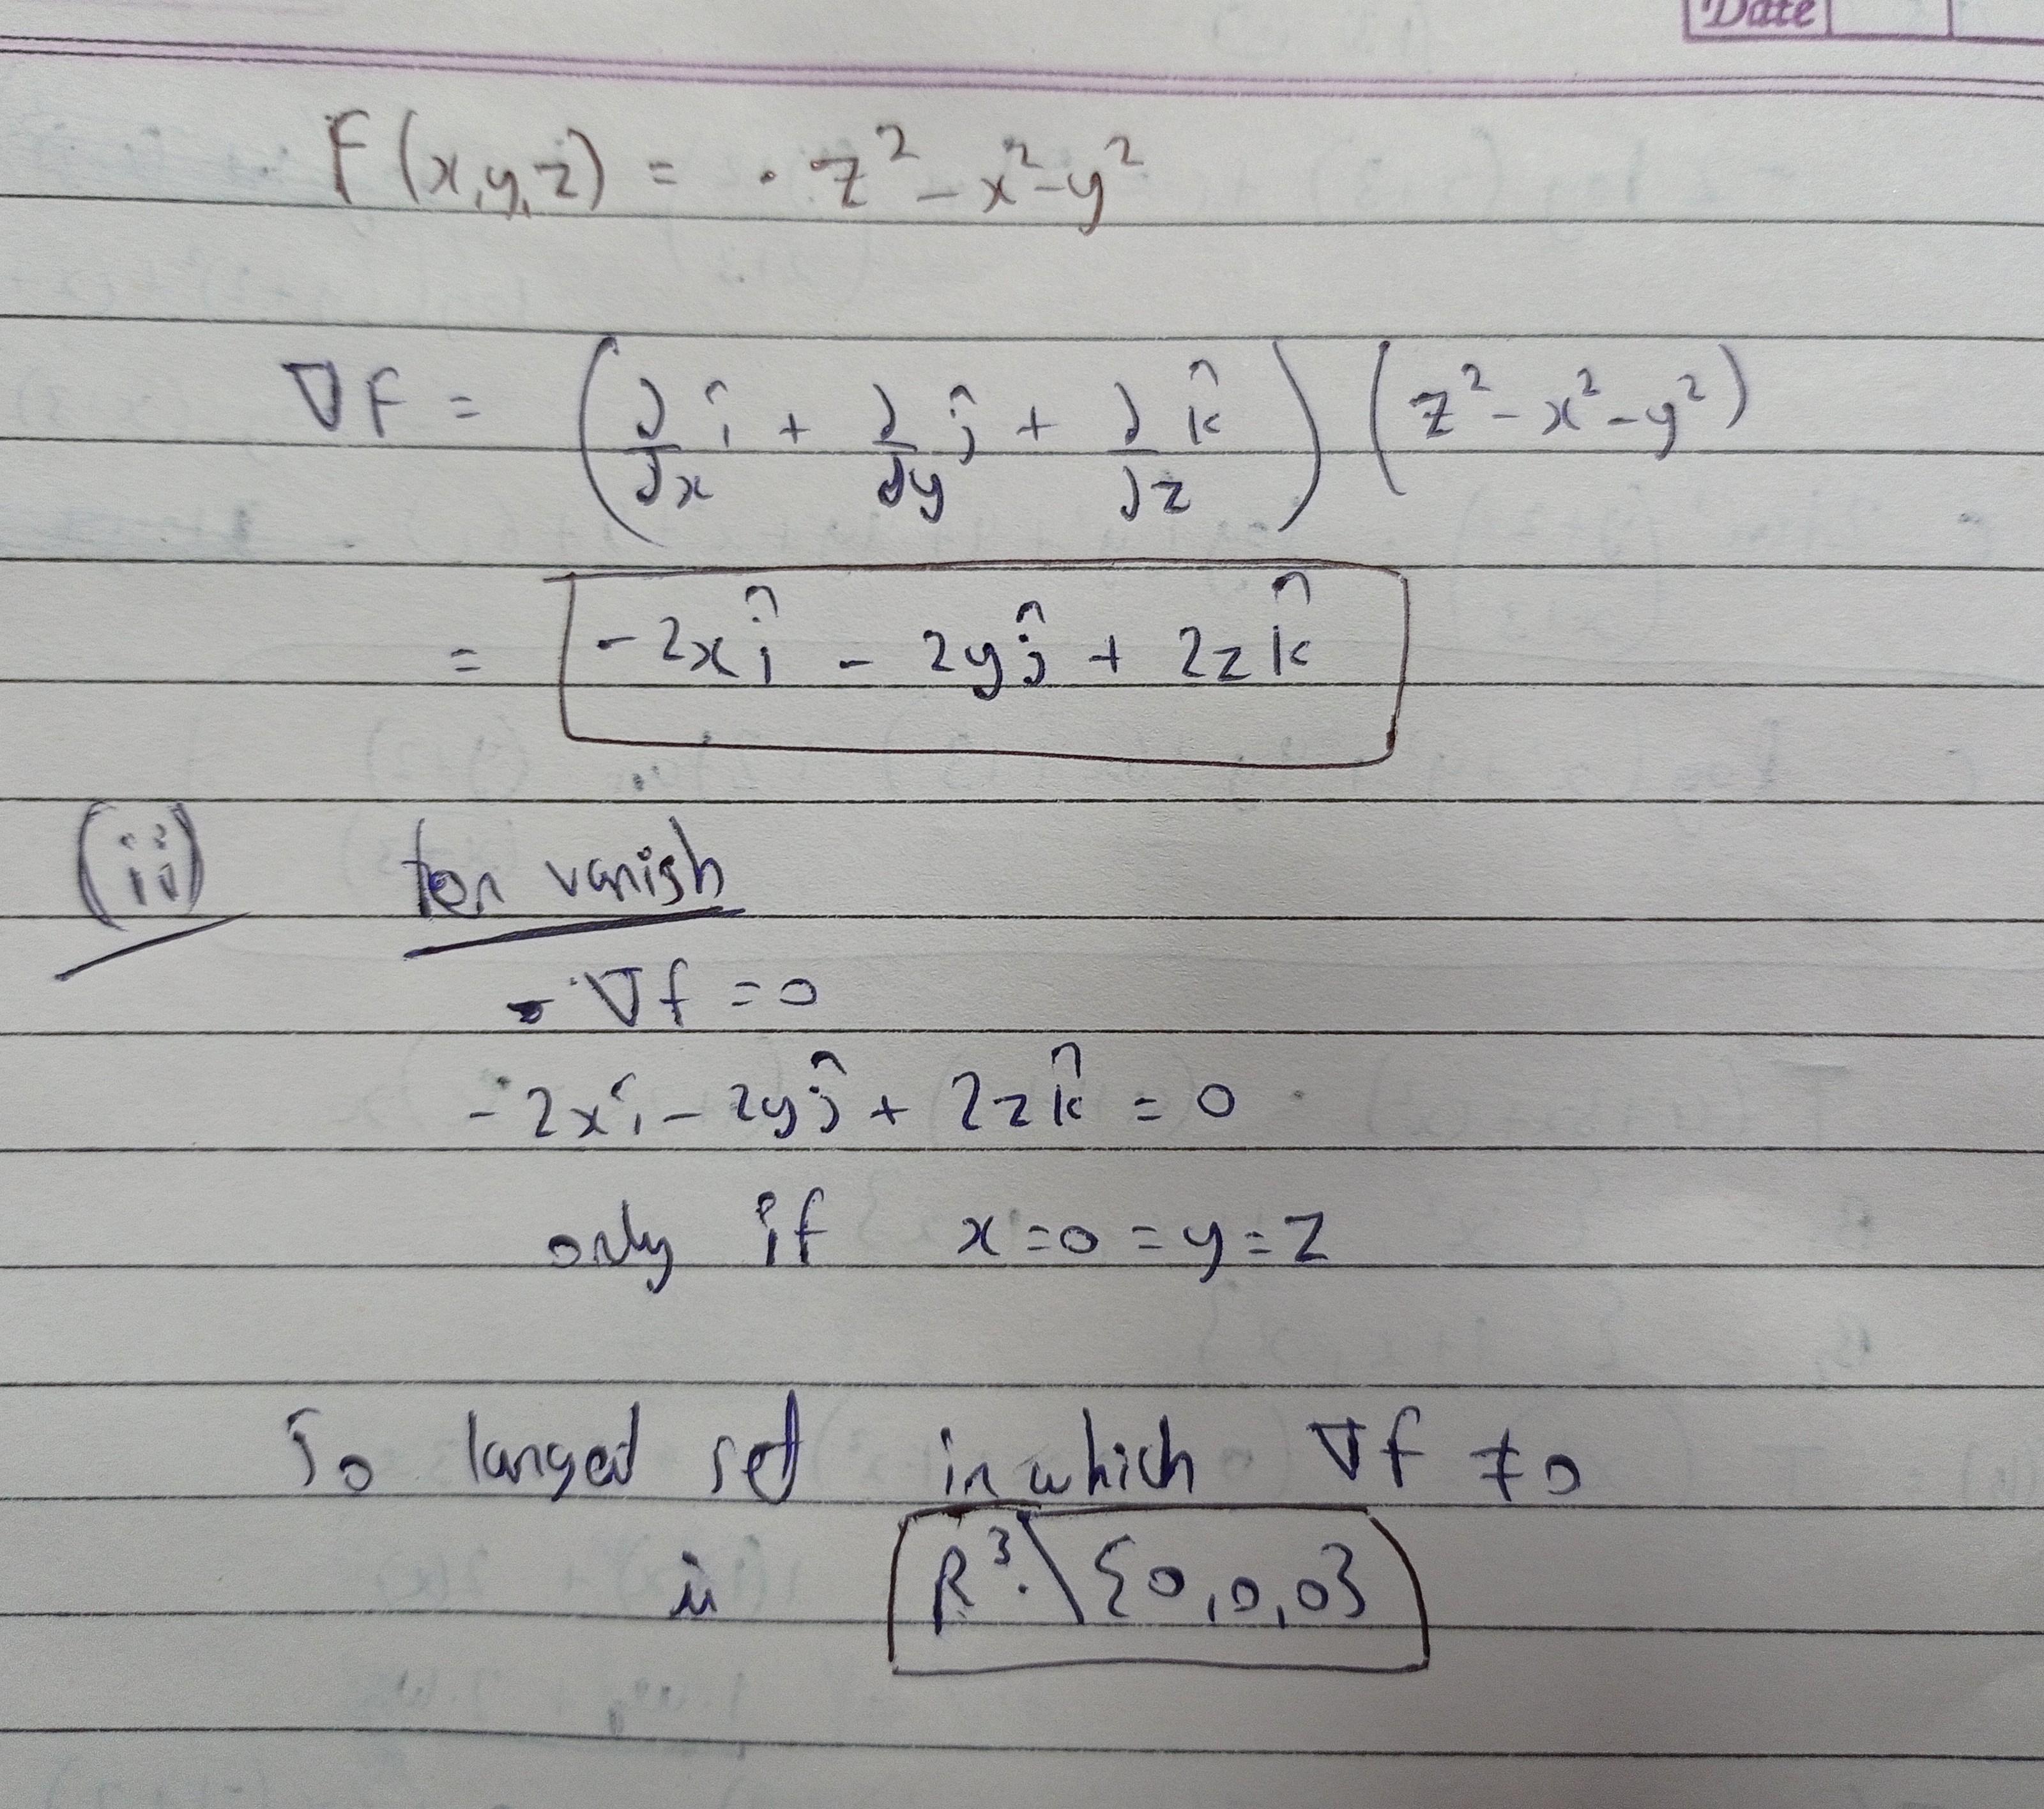 Date
F(x,y,z) = z² - x² - y²
∇F = (∂/∂x î + ∂/∂y ĵ + ∂/∂z k̂) (z² - x² - y²)
= -2x î - 2y ĵ + 2z k̂
(ii) for vanish
∇f = 0
-2x î - 2y ĵ + 2z k̂ = 0
only if x = 0 = y = z
So largest set in which ∇f ≠ 0
is R³ \ {0,0,0}